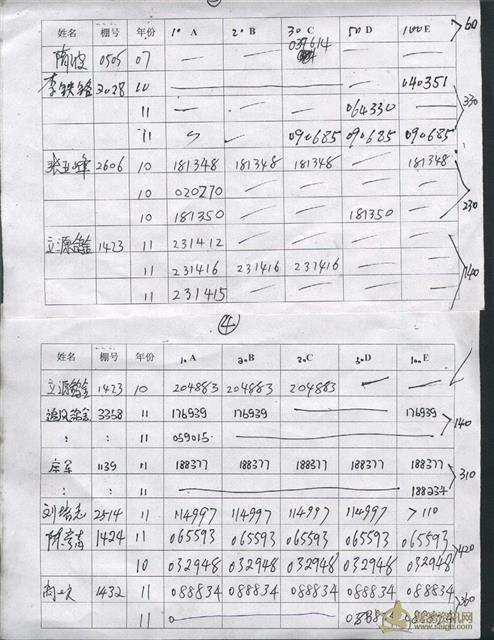 姓名 棚号 年份 10 A 20 B 30 C 50 D 100 E 60
0505 07 — — 037614 — —
李铁锋 2028 10 — 040351
11 — — — 064330 — 330
11 090685 090685 090685
2606 10 181348 181348 181348 — 181348
10 020270 — — — — 230
10 181350 — — 181350 —
立源鸽舍 1423 11 231412 — — — —
11 231416 231416 231416 — — 140
11 231415 — — — —
④
姓名 棚号 年份 10 A 20 B 30 C 50 D 100 E
立源鸽舍 1423 10 204883 204883 204883 — —
追风鸽舍 3358 11 176939 176939 — 176939
: : 11 059015 — 140
1139 11 188377 188377 188377 188377 188377
: : 11 — 188234 310
刘培志 2514 11 114997 114997 114997 114997 > 110
1424 11 065593 065593 065593 065593 065593
10 032948 032948 032948 032948 032948 420
1432 11 088834 088834 088834 088834 088834
11 360